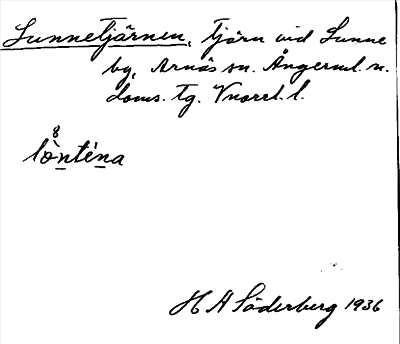 Sunnetjärnen, Tjärn vid Sunne
by, Arnäs sn. Ångerml. n.
doms. Tg. Vnorrl. l.
lò̀nténa
H A Söderberg 1936